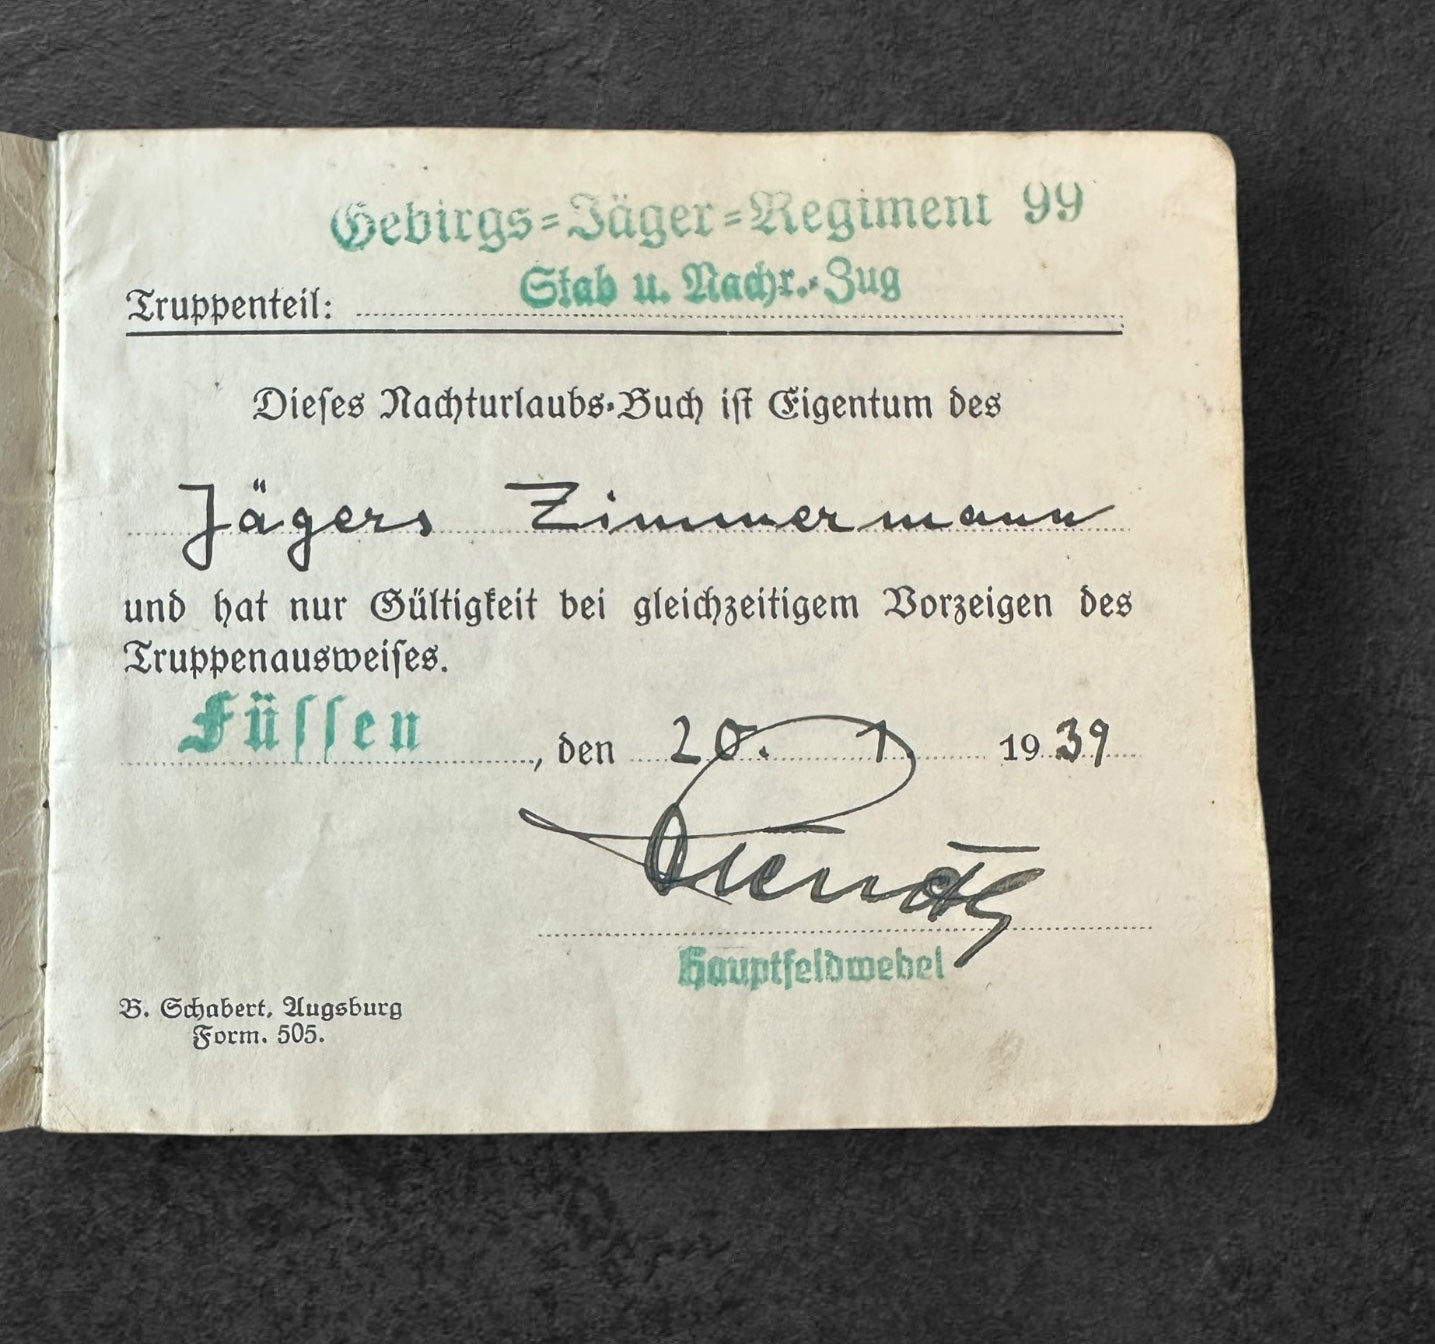 Gebirgs=Jäger=Regiment 99
Stab u. Nachr.=Zug
Truppenteil:
Dieses Nachturlaubs-Buch ist Eigentum des
Jägers Zimmermann
und hat nur Gültigkeit bei gleichzeitigem Vorzeigen des
Truppenausweises.
Füssen, den 20. 1 1939
Hauptfeldwebel
B. Schabert, Augsburg
Form. 505.